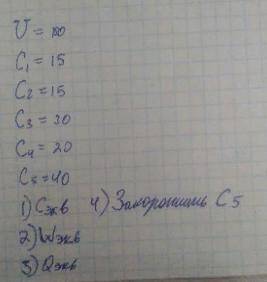 U = 100
C₁ = 15
C₂ = 15
C₃ = 30
C₄ = 20
C₅ = 40
1) Cэкв 4) Закоротишь C5
2) Wэкв
3) Qэкв